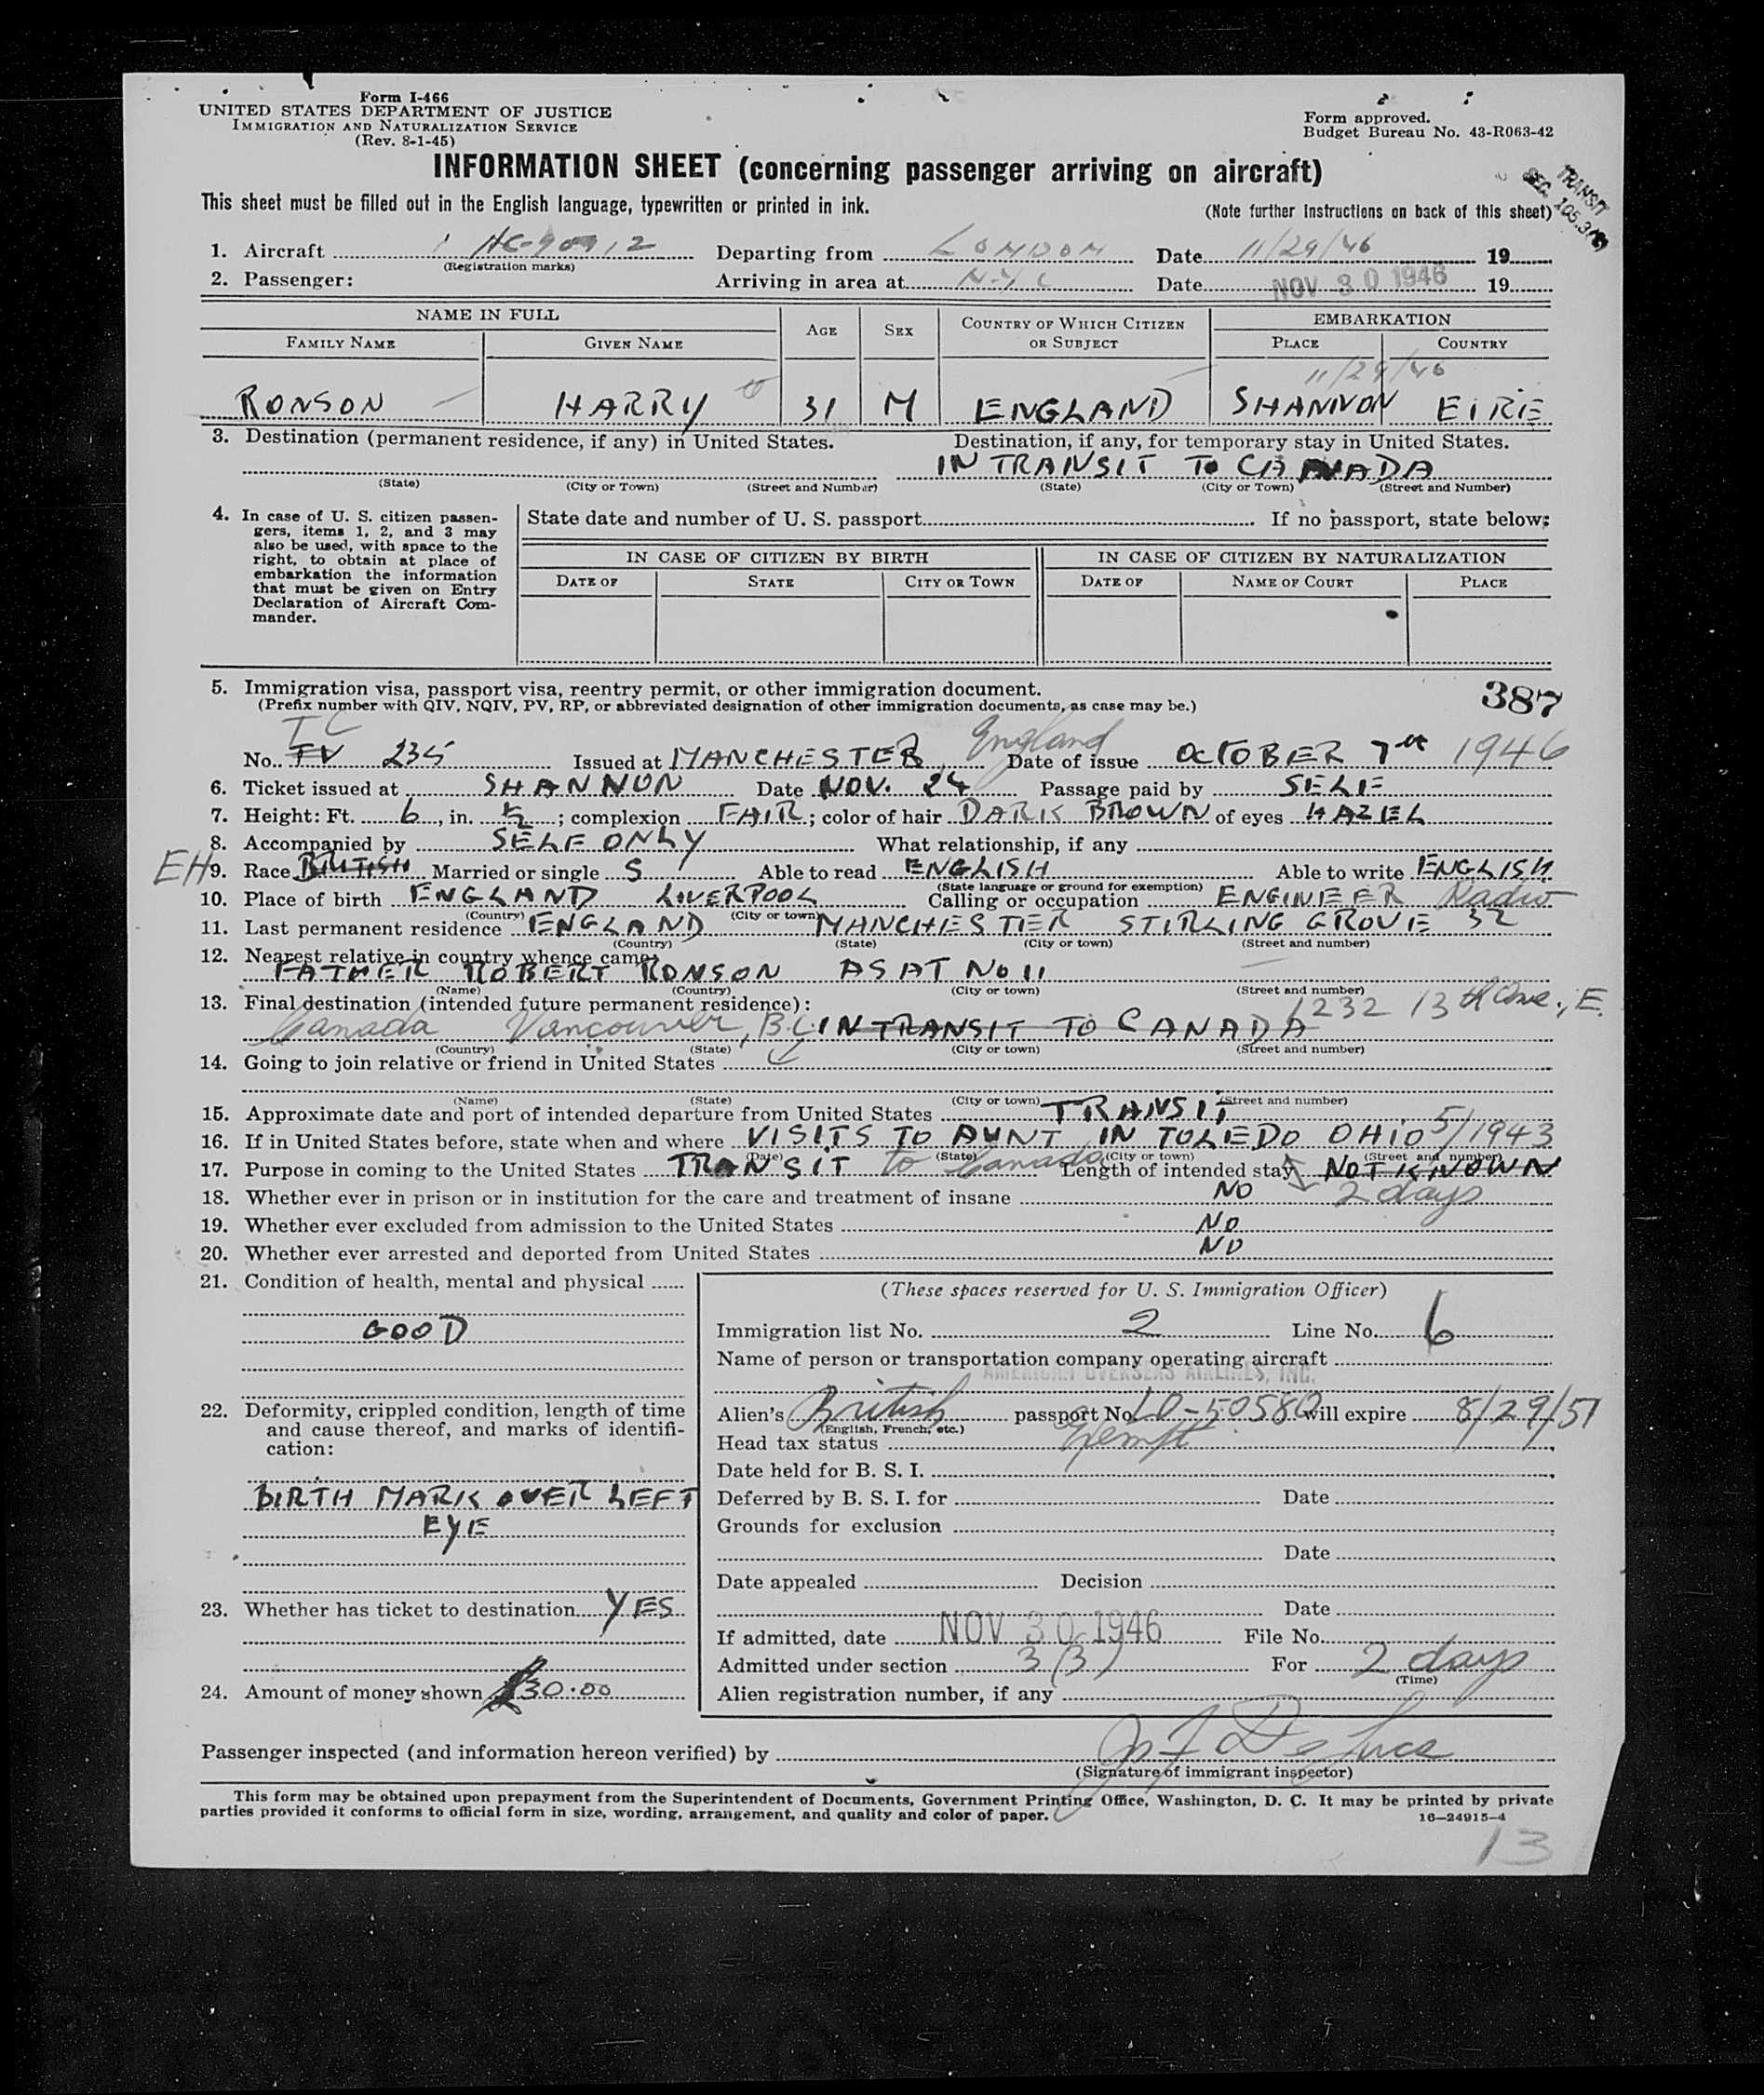 Form I-466
UNITED STATES DEPARTMENT OF JUSTICE
IMMIGRATION AND NATURALIZATION SERVICE
(Rev. 8-1-45)
Form approved.
Budget Bureau No. 43-R063-42
INFORMATION SHEET (concerning passenger arriving on aircraft)
TRANSIT
SEC. 105.3
This sheet must be filled out in the English language, typewritten or printed in ink. (Note further instructions on back of this sheet)
1. Aircraft Departing from LONDON Date 11/29/46 19
(Registration marks)
2. Passenger: Arriving in area at N.Y.C Date NOV 30 1946 19
NAME IN FULL AGE SEX COUNTRY OF WHICH CITIZEN OR SUBJECT EMBARKATION
FAMILY NAME GIVEN NAME PLACE COUNTRY
11/29/46
RONSON HARRY 31 M ENGLAND SHANNON EIRE
3. Destination (permanent residence, if any) in United States. Destination, if any, for temporary stay in United States.
IN TRANSIT TO CANADA
(State) (City or Town) (Street and Number) (State) (City or Town) (Street and Number)
4. In case of U. S. citizen passengers, items 1, 2, and 3 may also be used, with space to the right, to obtain at place of embarkation the information that must be given on Entry Declaration of Aircraft Commander.
State date and number of U. S. passport If no passport, state below:
IN CASE OF CITIZEN BY BIRTH IN CASE OF CITIZEN BY NATURALIZATION
DATE OF STATE CITY OR TOWN DATE OF NAME OF COURT PLACE
5. Immigration visa, passport visa, reentry permit, or other immigration document. 387
(Prefix number with QIV, NQIV, PV, RP, or abbreviated designation of other immigration documents, as case may be.)
TC
No. TV 235 Issued at MANCHESTER, England Date of issue OCTOBER 7th 1946
6. Ticket issued at SHANNON Date NOV. 24 Passage paid by SELF
7. Height: Ft. 6, in. ½; complexion FAIR; color of hair DARK BROWN of eyes HAZEL
8. Accompanied by SELF ONLY What relationship, if any
EH 9. Race BRITISH Married or single S Able to read ENGLISH Able to write ENGLISH
(State language or ground for exemption)
10. Place of birth ENGLAND LIVERPOOL Calling or occupation ENGINEER Radio
(Country) (City or town)
11. Last permanent residence ENGLAND MANCHESTER STIRLING GROVE 32
(Country) (State) (City or town) (Street and number)
12. Nearest relative in country whence came:
FATHER ROBERT RONSON AS AT No 11
(Name) (Country) (City or town) (Street and number)
13. Final destination (intended future permanent residence): 1232 13th Ave., E.
Canada Vancouver, B.C. IN TRANSIT TO CANADA
(Country) (State) (City or town) (Street and number)
14. Going to join relative or friend in United States
(Name) (State) (City or town) (Street and number)
15. Approximate date and port of intended departure from United States TRANSIT
16. If in United States before, state when and where VISITS TO AUNT IN TOLEDO OHIO 5/1943
(Date) (State) (City or town) (Street and number)
17. Purpose in coming to the United States TRANSIT to Canada Length of intended stay NOT KNOWN
18. Whether ever in prison or in institution for the care and treatment of insane NO 2 days
19. Whether ever excluded from admission to the United States NO
20. Whether ever arrested and deported from United States NO
21. Condition of health, mental and physical
GOOD
22. Deformity, crippled condition, length of time and cause thereof, and marks of identification:
BIRTH MARK OVER LEFT
EYE
23. Whether has ticket to destination YES
24. Amount of money shown £30.00
(These spaces reserved for U. S. Immigration Officer)
Immigration list No. 2 Line No. 6
Name of person or transportation company operating aircraft
AMERICAN OVERSEAS AIRLINES, INC.
Alien's British passport No. LO-50580 will expire 8/29/51
(English, French, etc.)
Head tax status Exempt
Date held for B. S. I.
Deferred by B. S. I. for Date
Grounds for exclusion
Date
Date appealed Decision
Date
If admitted, date NOV 30 1946 File No.
Admitted under section 3(3) For 2 days
(Time)
Alien registration number, if any
Passenger inspected (and information hereon verified) by
(Signature of immigrant inspector)
This form may be obtained upon prepayment from the Superintendent of Documents, Government Printing Office, Washington, D. C. It may be printed by private
parties provided it conforms to official form in size, wording, arrangement, and quality and color of paper. 16—24915-4
13